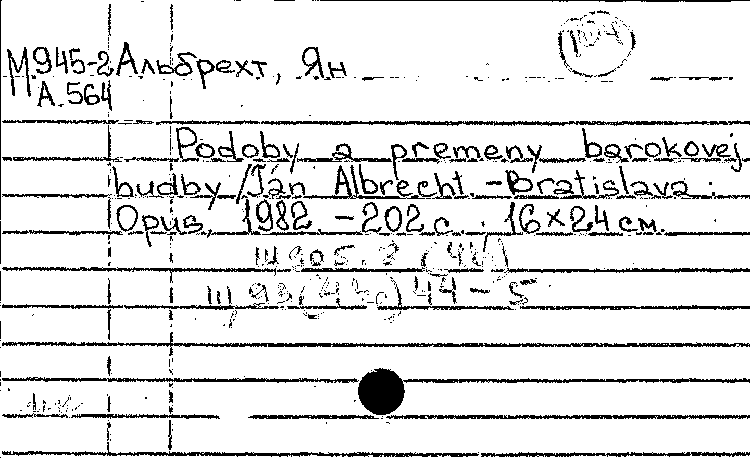 М.945-2 Альбрехт, Ян
А.564
Podoby a premeny barokovej
hudby / Ján Albrecht. - Bratislava :
Opus, 1982. - 202 с. . 16×24 см.
44 - 5